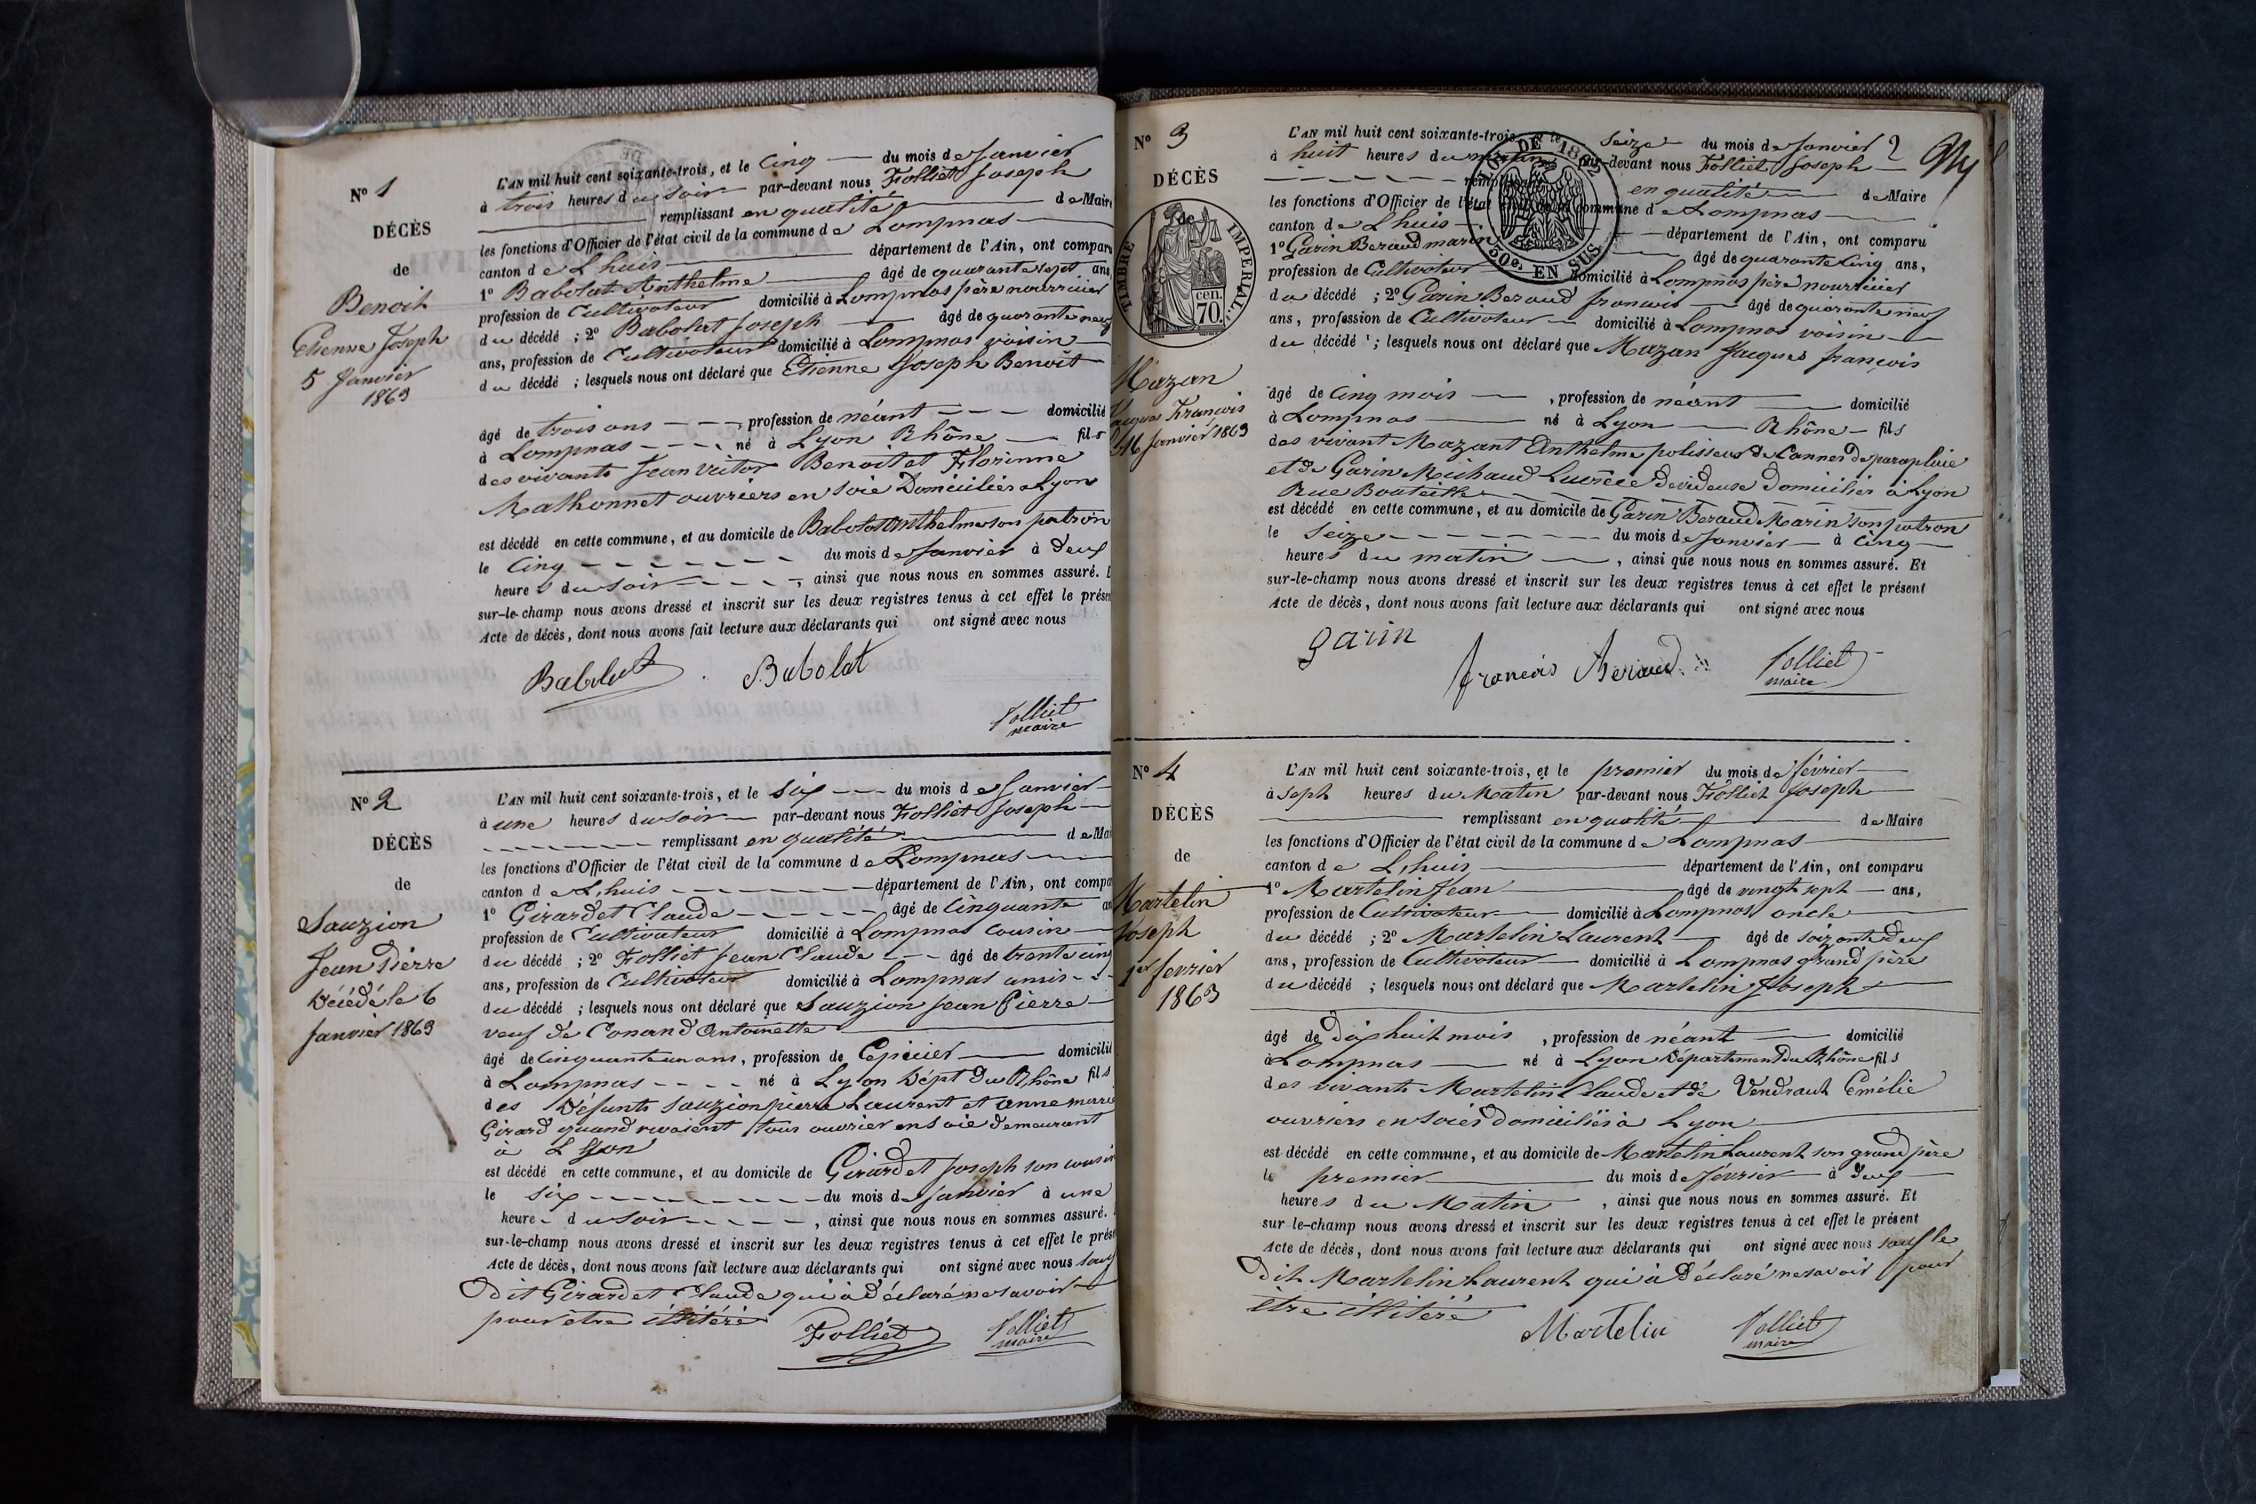 N° 1
DÉCÈS
de
Benoit
Etienne Joseph
5 Janvier
1863
L'AN mil huit cent soixante-trois, et le Cinq du mois de Janvier
à trois heures du soir par-devant nous Folliet Joseph
remplissant en qualité de Maire
les fonctions d'Officier de l'état civil de la commune de Lompnas
canton de Lhuis département de l'Ain, ont comparu
1° Babolat Anthelme âgé de quarante sept ans,
profession de Cultivateur domicilié à Lompnas père nourricier
du décédé ; 2° Babolat Joseph âgé de quarante neuf
ans, profession de Cultivateur domicilié à Lompnas voisin
du décédé ; lesquels nous ont déclaré que Etienne Joseph Benoit
âgé de trois ans, profession de néant domicilié
à Lompnas né à Lyon Rhône fils
des vivants Jean Victor Benoit et Florinne
Mathonnet ouvriers en soie Domiciliés a Lyon
est décédé en cette commune, et au domicile de Babolat Anthelme son patron
le Cinq du mois de Janvier à deux
heures du soir, ainsi que nous nous en sommes assuré. E
sur-le-champ nous avons dressé et inscrit sur les deux registres tenus à cet effet le présen
Acte de décès, dont nous avons fait lecture aux déclarants qui ont signé avec nous
Babolat Babolat
Folliet
maire
N° 2
DÉCÈS
de
Sauzion
Jean Pierre
Décédé le 6
Janvier 1863
L'AN mil huit cent soixante-trois, et le six du mois de Janvier
à une heures du soir par-devant nous Folliet Joseph
remplissant en qualité de Mai
les fonctions d'Officier de l'état civil de la commune de Lompnas
canton de Lhuis département de l'Ain, ont compa
1° Girardet Claude âgé de Cinquante an
profession de Cultivateur domicilié à Lompnas Cousin
du décédé ; 2° Folliet Jean Claude âgé de trente cinq
ans, profession de Cultivateur domicilié à Lompnas amis
du décédé ; lesquels nous ont déclaré que Sauzion Jean Pierre
veuf de Conand Antoinette
âgé de Cinquante un ans, profession de Epicier domicilié
à Lompnas né à Lyon Dépt Du Rhône fils
des Défunts Sauzion pierre Laurent et anne marie
Girard quand vivaient tous ouvrier en soie demeurant
à Lyon
est décédé en cette commune, et au domicile de Girardet Joseph son cousin
le six du mois de Janvier à une
heure du soir, ainsi que nous nous en sommes assuré.
sur-le-champ nous avons dressé et inscrit sur les deux registres tenus à cet effet le prése
Acte de décès, dont nous avons fait lecture aux déclarants qui ont signé avec nous sauf
Dit Girardet Claude qui à Déclaré ne savoir
pour être illitéré
Folliet Folliet
maire
N° 3
DÉCÈS
de
TIMBRE IMPERIAL
70 cen.
Mazan
Jacques François
16 Janvier 1863
LOI DE 1862
50c. EN SUS
2
L'AN mil huit cent soixante-trois, et le Seize du mois de Janvier
à huit heures du matin par-devant nous Folliet Joseph
remplissant en qualité de Maire
les fonctions d'Officier de l'état civil de la commune de Lompnas
canton de Lhuis département de l'Ain, ont comparu
1° Garin Beraud marin âgé de quarante Cinq ans,
profession de Cultivateur domicilié à Lompnas père nourricier
du décédé ; 2° Garin Beraud francois âgé de quarante neuf
ans, profession de Cultivateur domicilié à Lompnas voisin
du décédé ; lesquels nous ont déclaré que Mazan Jacques françois
âgé de Cinq mois, profession de néant domicilié
à Lompnas né à Lyon Rhône fils
des vivant Mazant Anthelme polisseur de Cannes de parapluie
et de Garin Michaud Lucrèce Devideuse Domiciliés à Lyon
Rue Bouteille
est décédé en cette commune, et au domicile de Garin Beraud Marin son patron
le Seize du mois de Janvier à Cinq
heures du matin, ainsi que nous nous en sommes assuré. Et
sur-le-champ nous avons dressé et inscrit sur les deux registres tenus à cet effet le présent
Acte de décès, dont nous avons fait lecture aux déclarants qui ont signé avec nous
garin
françois Beraud Folliet
maire
N° 4
DÉCÈS
de
Martelin
Joseph
1er fevrier
1863
L'AN mil huit cent soixante-trois, et le premier du mois de février
à Sept heures du Matin par-devant nous Folliet Joseph
remplissant en qualité de Maire
les fonctions d'Officier de l'état civil de la commune de Lompnas
canton de Lhuis département de l'Ain, ont comparu
1° Martelin Jean âgé de vingt sept ans,
profession de Cultivateur domicilié à Lompnas oncle
du décédé ; 2° Martelin Laurent âgé de soizante deux
ans, profession de Cultivateur domicilié à Lompnas grand père
du décédé ; lesquels nous ont déclaré que Martelin Joseph
âgé de Dix huit mois, profession de néant domicilié
à Lompnas né à Lyon Département du Rhône fils
des vivants Martelin Claude et de Vendrant Emélie
ouvriers en soies domiciliés à Lyon
est décédé en cette commune, et au domicile de Martelin Laurent son grand père
le premier du mois de février à deux
heures du Matin, ainsi que nous nous en sommes assuré. Et
sur-le-champ nous avons dressé et inscrit sur les deux registres tenus à cet effet le présent
Acte de décès, dont nous avons fait lecture aux déclarants qui ont signé avec nous sauf le
Dit Martelin Laurent qui à Déclaré ne savoir pour
être illitéré
Martelin Folliet
maire